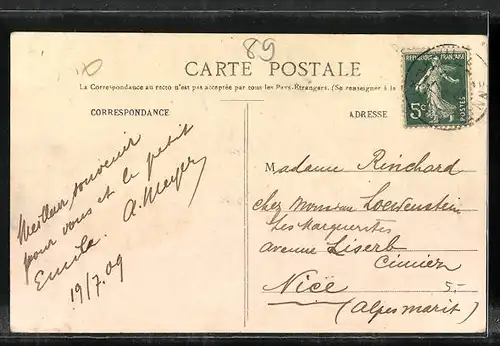 89
CARTE POSTALE
La Correspondance au recto n'est pas acceptée par tous les Pays-Étrangers. (Se renseigner à la
CORRESPONDANCE
ADRESSE
RÉPUBLIQUE FRANÇAISE
5c
POSTES
Meilleur souvenir
pour vous et le petit
Emile. A. Meyer
19/7.09
Madame Rinchard
chez Monsieur Loewenstein
Les Marguerites
avenue Liserb
Cimiez
Nice
5,-
(Alpes marit)